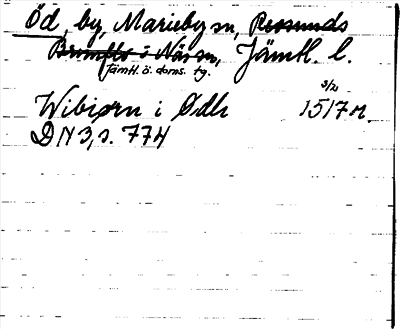 Öd, by, Marieby sn, Ressunds
Brunflo o Näs sn, Jämtl. l.
Jämtl. ö. doms. tg.
3/2
Wibiørn i Ødh 1517 n.
DN 3, s. 774